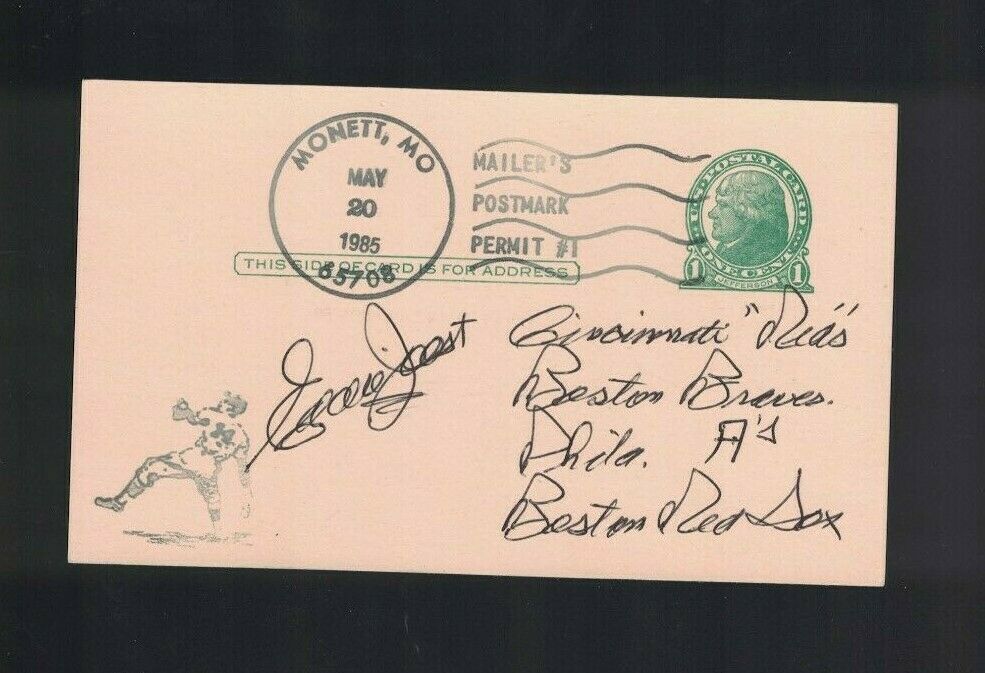 MONETT, MO
MAY
20
1985
65708
MAILER'S
POSTMARK
PERMIT #1
U.S. POSTAL CARD
1 ONE CENT 1
JEFFERSON
THIS SIDE OF CARD IS FOR ADDRESS
Eddie Joost
Cincinnati "Red's"
Boston Braves.
Phila. A's
Boston Red Sox